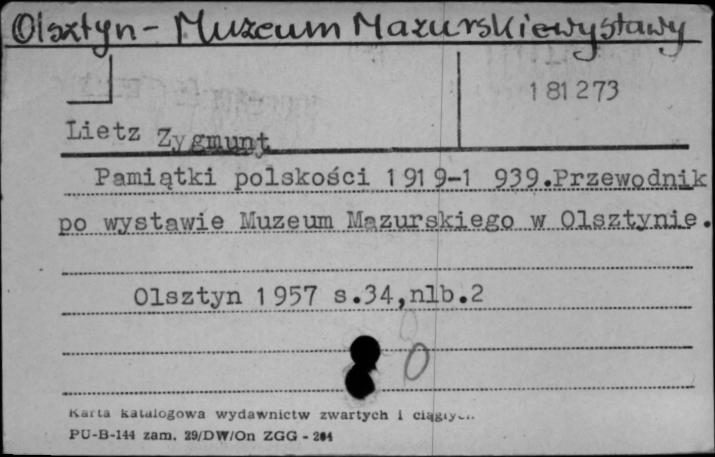 Olsztyn - Muzeum Mazurskie wystawy
181273
Lietz Zygmunt
Pamiątki polskości 1919-1939. Przewodnik
po wystawie Muzeum Mazurskiego w Olsztynie.
Olsztyn 1957 s.34,nlb.2
0
Karta katalogowa wydawnictw zwartych i
PU-B-144 zam. 29/DW/On ZGG - 204